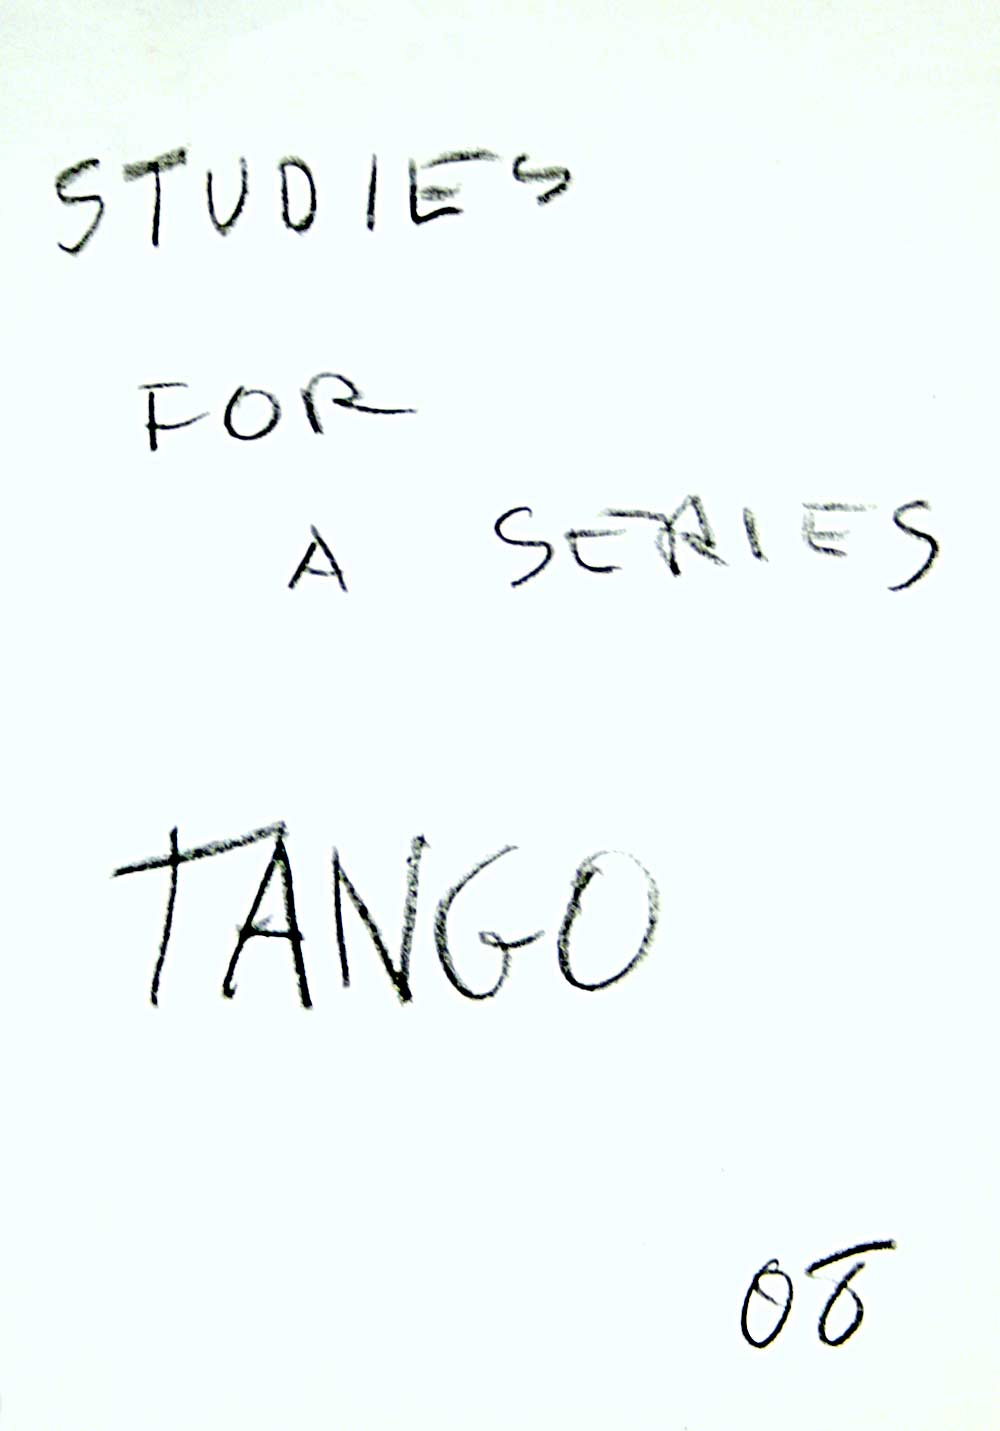 STUDIES
FOR
A SERIES
TANGO
08